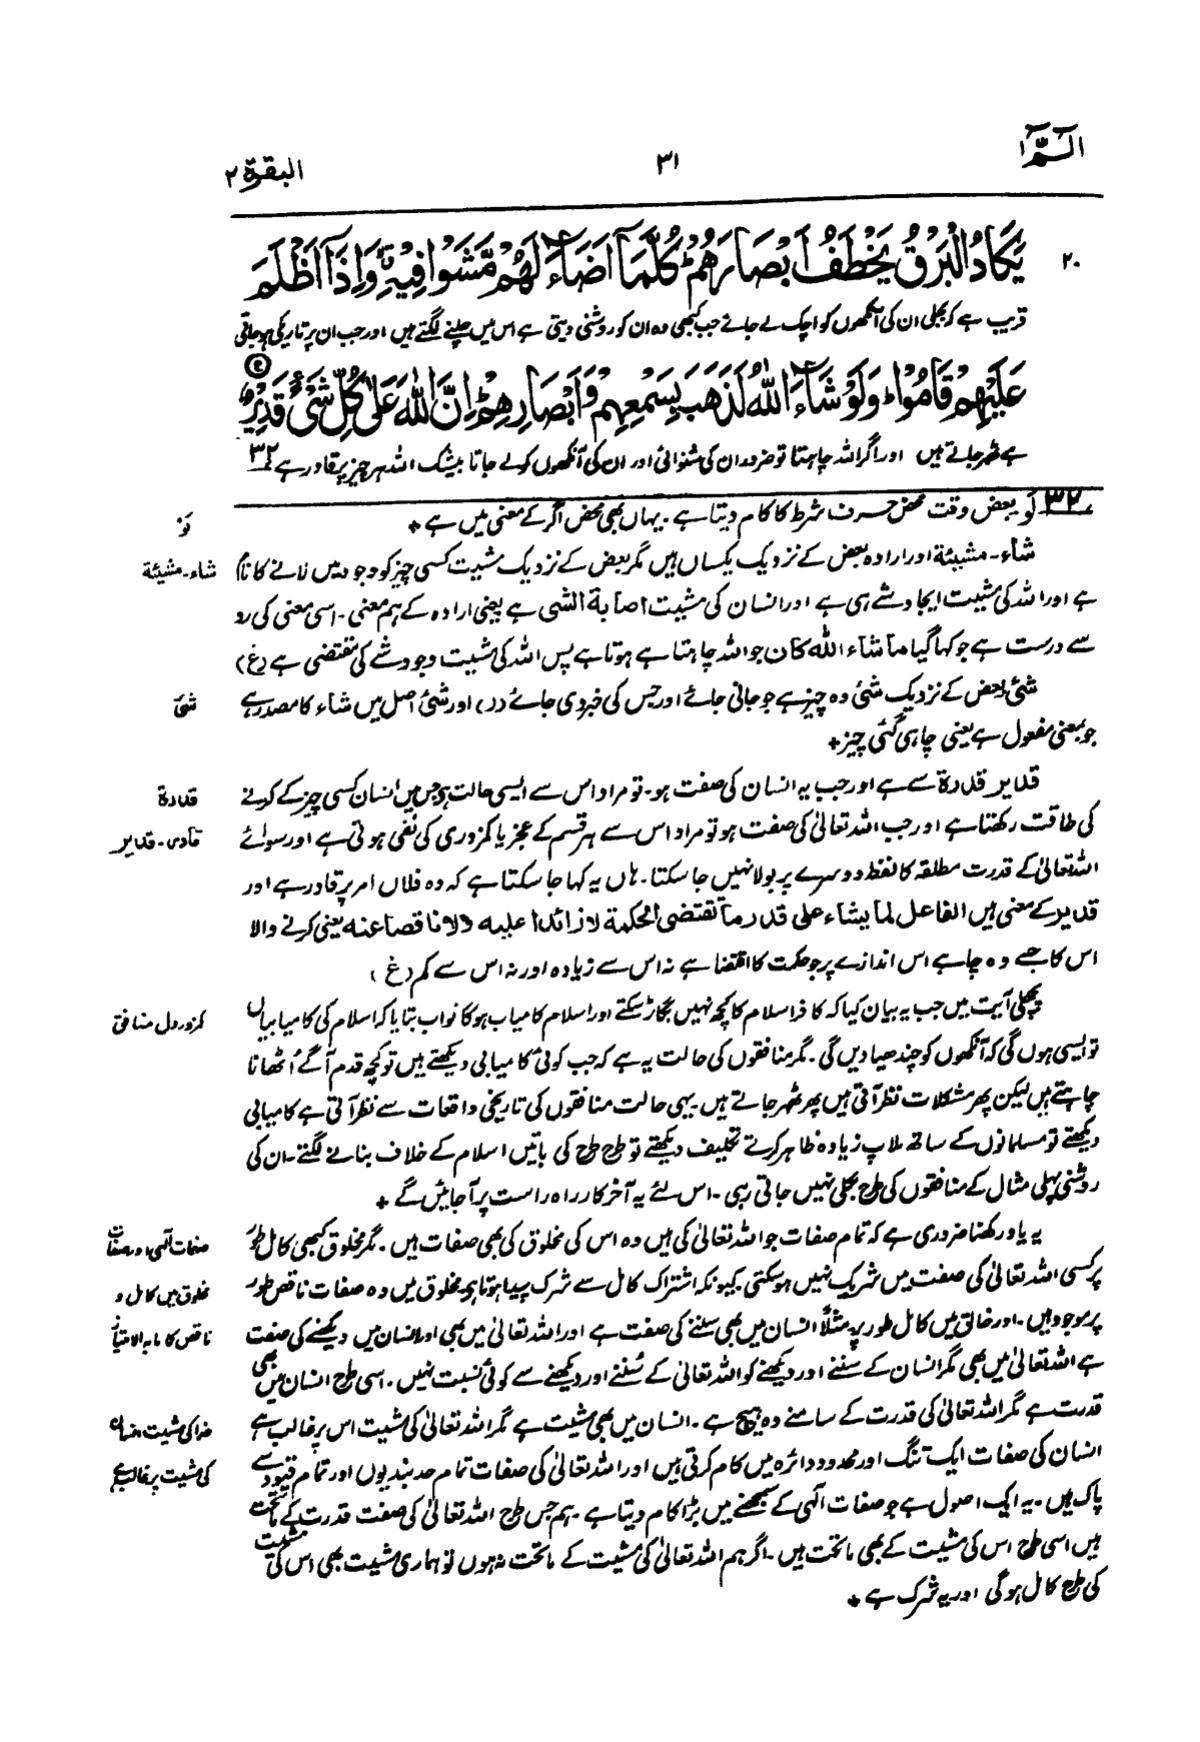 الٓـمّٓ ا
۳۱
البقرة ۲
۲۰
يَكَادُ الْبَرْقُ يَخْطَفُ اَبْصَارَهُمْ ؕ كُلَّمَاۤ اَضَآءَ لَهُمْ مَّشَوْا فِيْهِ ۙ وَاِذَاۤ اَظْلَمَ
قریب ہے کہ بجلی ان کی آنکھوں کو اچک لے جائے جب کبھی وہ ان کو روشنی دیتی ہے اس میں چلنے لگتے ہیں اور جب ان پر تاریکی ہو جاتی
عَلَيْهِمْ قَامُوْا ؕ وَلَوْ شَآءَ اللّٰهُ لَذَهَبَ بِسَمْعِهِمْ وَاَبْصَارِهِمْ ؕ اِنَّ اللّٰهَ عَلٰى كُلِّ شَىْءٍ قَدِيْرٌ
ہے ٹھہر جاتے ہیں اور اگر اللہ چاہتا تو ضرور ان کی شنوائی اور ان کی آنکھوں کو لے جاتا بیشک اللہ ہر چیز پر قادر ہے ۳۲
۳۲ لَو بعض وقت محض حرف شرط کا کام دیتا ہے۔ یہاں بھی محض اگر کے معنی میں ہے +
لَوْ
شاء۔ مشیئة اور ارادہ بعض کے نزدیک یکساں ہیں مگر بعض کے نزدیک مشیت کسی چیز کو وجود میں لانے کا نام
شاء۔ مشیئة
ہے اور اللہ کی مشیت ایجاد شے ہی ہے اور انسان کی مشیت اصابة الشی ہے یعنی ارادہ کے ہم معنی۔ اسی معنی کی رو
سے درست ہے جو کہا گیا ماشاء اللہ کان جو اللہ چاہتا ہے ہوتا ہے پس اللہ کی مشیت وجود شے کی مقتضی ہے (غ)
شیٔ بعض کے نزدیک شیٔ وہ چیز ہے جو جانی جائے اور جس کی خبر دی جائے (ر) اور شیٔ اصل میں شاء کا مصدر ہے
شیٔ
جو بمعنی مفعول ہے یعنی چاہی گئی چیز +
قدیر قدرة سے ہے اور جب یہ انسان کی صفت ہو۔ تو مراد اس سے ایسی حالت ہے جس میں انسان کسی چیز کے کرنے
قدرة
کی طاقت رکھتا ہے اور جب اللہ تعالیٰ کی صفت ہو تو مراد اس سے ہر قسم کے عجز یا کمزوری کی نفی ہوتی ہے اور سوائے
قادر۔ قدیر
اللہ تعالیٰ کے قدرت مطلقہ کا لفظ دوسرے پر بولا نہیں جا سکتا۔ ہاں یہ کہا جا سکتا ہے کہ وہ فلاں امر پر قادر ہے اور
قدیر کے معنی ہیں الفاعل لما یشاء علی قدر ما تقتضی الحکمة لا زائدا علیه ولا ناقصا عنه یعنی کرنے والا
اس کا جسے وہ چاہے اس اندازے پر جو حکمت کا اقتضا ہے نہ اس سے زیادہ اور نہ اس سے کم (غ)
پچھلی آیت میں جب یہ بیان کیا کہ کافر اسلام کا کچھ نہیں بگاڑ سکتے اور اسلام کامیاب ہو گا تو اب بتایا کہ اسلام کی کامیابیاں
کمزور دل منافق
تو ایسی ہوں گی کہ آنکھوں کو چندھیا دیں گی۔ مگر منافقوں کی حالت یہ ہے کہ جب کوئی کامیابی دیکھتے ہیں تو کچھ قدم آگے اُٹھانا
چاہتے ہیں لیکن پھر مشکلات نظر آتی ہیں پھر ٹھہر جاتے ہیں۔ یہی حالت منافقوں کی تاریخی واقعات سے نظر آتی ہے کامیابی
دیکھتے تو مسلمانوں کے ساتھ ملاپ زیادہ ظاہر کرتے تکلیف دیکھتے تو طرح طرح کی باتیں اسلام کے خلاف بنانے لگتے۔ ان کی
روشنی پہلی مثال کے منافقوں کی طرح بجلی نہیں جاتی رہی۔ اس لئے یہ آخر کار راہ راست پر آ جائیں گے +
یہ یاد رکھنا ضروری ہے کہ تمام صفات جو اللہ تعالیٰ کی ہیں وہ اس کی مخلوق کی بھی صفات ہیں۔ مگر مخلوق کبھی کامل طور
صفات آلہی اور صفات
پر کسی اللہ تعالیٰ کی صفت میں شریک نہیں ہو سکتی کیونکہ اشتراک کامل سے شرک پیدا ہوتا ہے مخلوق میں وہ صفات ناقص طور
مخلوق میں کامل و
پر موجود ہیں۔ اور خالق میں کامل طور پر مثلاً انسان میں بھی سننے کی صفت ہے اور اللہ تعالیٰ میں بھی اور انسان میں دیکھنے کی صفت
ناقص کا مابہ الامتیاز
ہے اللہ تعالیٰ میں بھی مگر انسان کے سننے اور دیکھنے کو اللہ تعالیٰ کے سُننے اور دیکھنے سے کوئی نسبت نہیں۔ اسی طرح انسان میں بھی
قدرت ہے مگر اللہ تعالیٰ کی قدرت کے سامنے وہ ہیچ ہے۔ انسان میں بھی مشیت ہے مگر اللہ تعالیٰ کی مشیت اس پر غالب ہے
خدا کی مشیت انسان
انسان کی صفات ایک تنگ اور محدود دائرہ میں کام کرتی ہیں اور اللہ تعالیٰ کی صفات تمام حد بندیوں اور تمام قیود سے
کی مشیت پر غالب ہے
پاک ہیں۔ یہ ایک اصول ہے جو صفات آلہی کے سمجھنے میں بڑا کام دیتا ہے۔ ہم جس طرح اللہ تعالیٰ کی صفت قدرت کے ماتحت
ہیں اسی طرح اس کی مشیت کے بھی ماتحت ہیں۔ اگر ہم اللہ تعالیٰ کی مشیت کے ماتحت نہ ہوں تو ہماری مشیت بھی اس کی مشیت
کی طرح کامل ہو گی اور یہ شرک ہے +